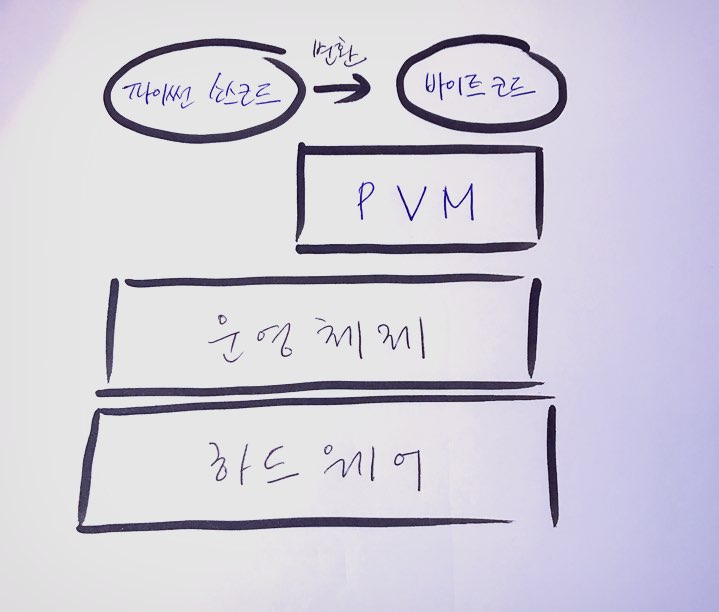 변환
파이썬 소스코드
바이트코드
PVM
운영체제
하드웨어